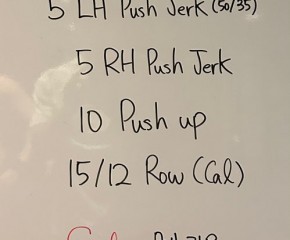 5 LH Push Jerk (50/35)
5 RH Push Jerk
10 Push up
15/12 Row (Cal)